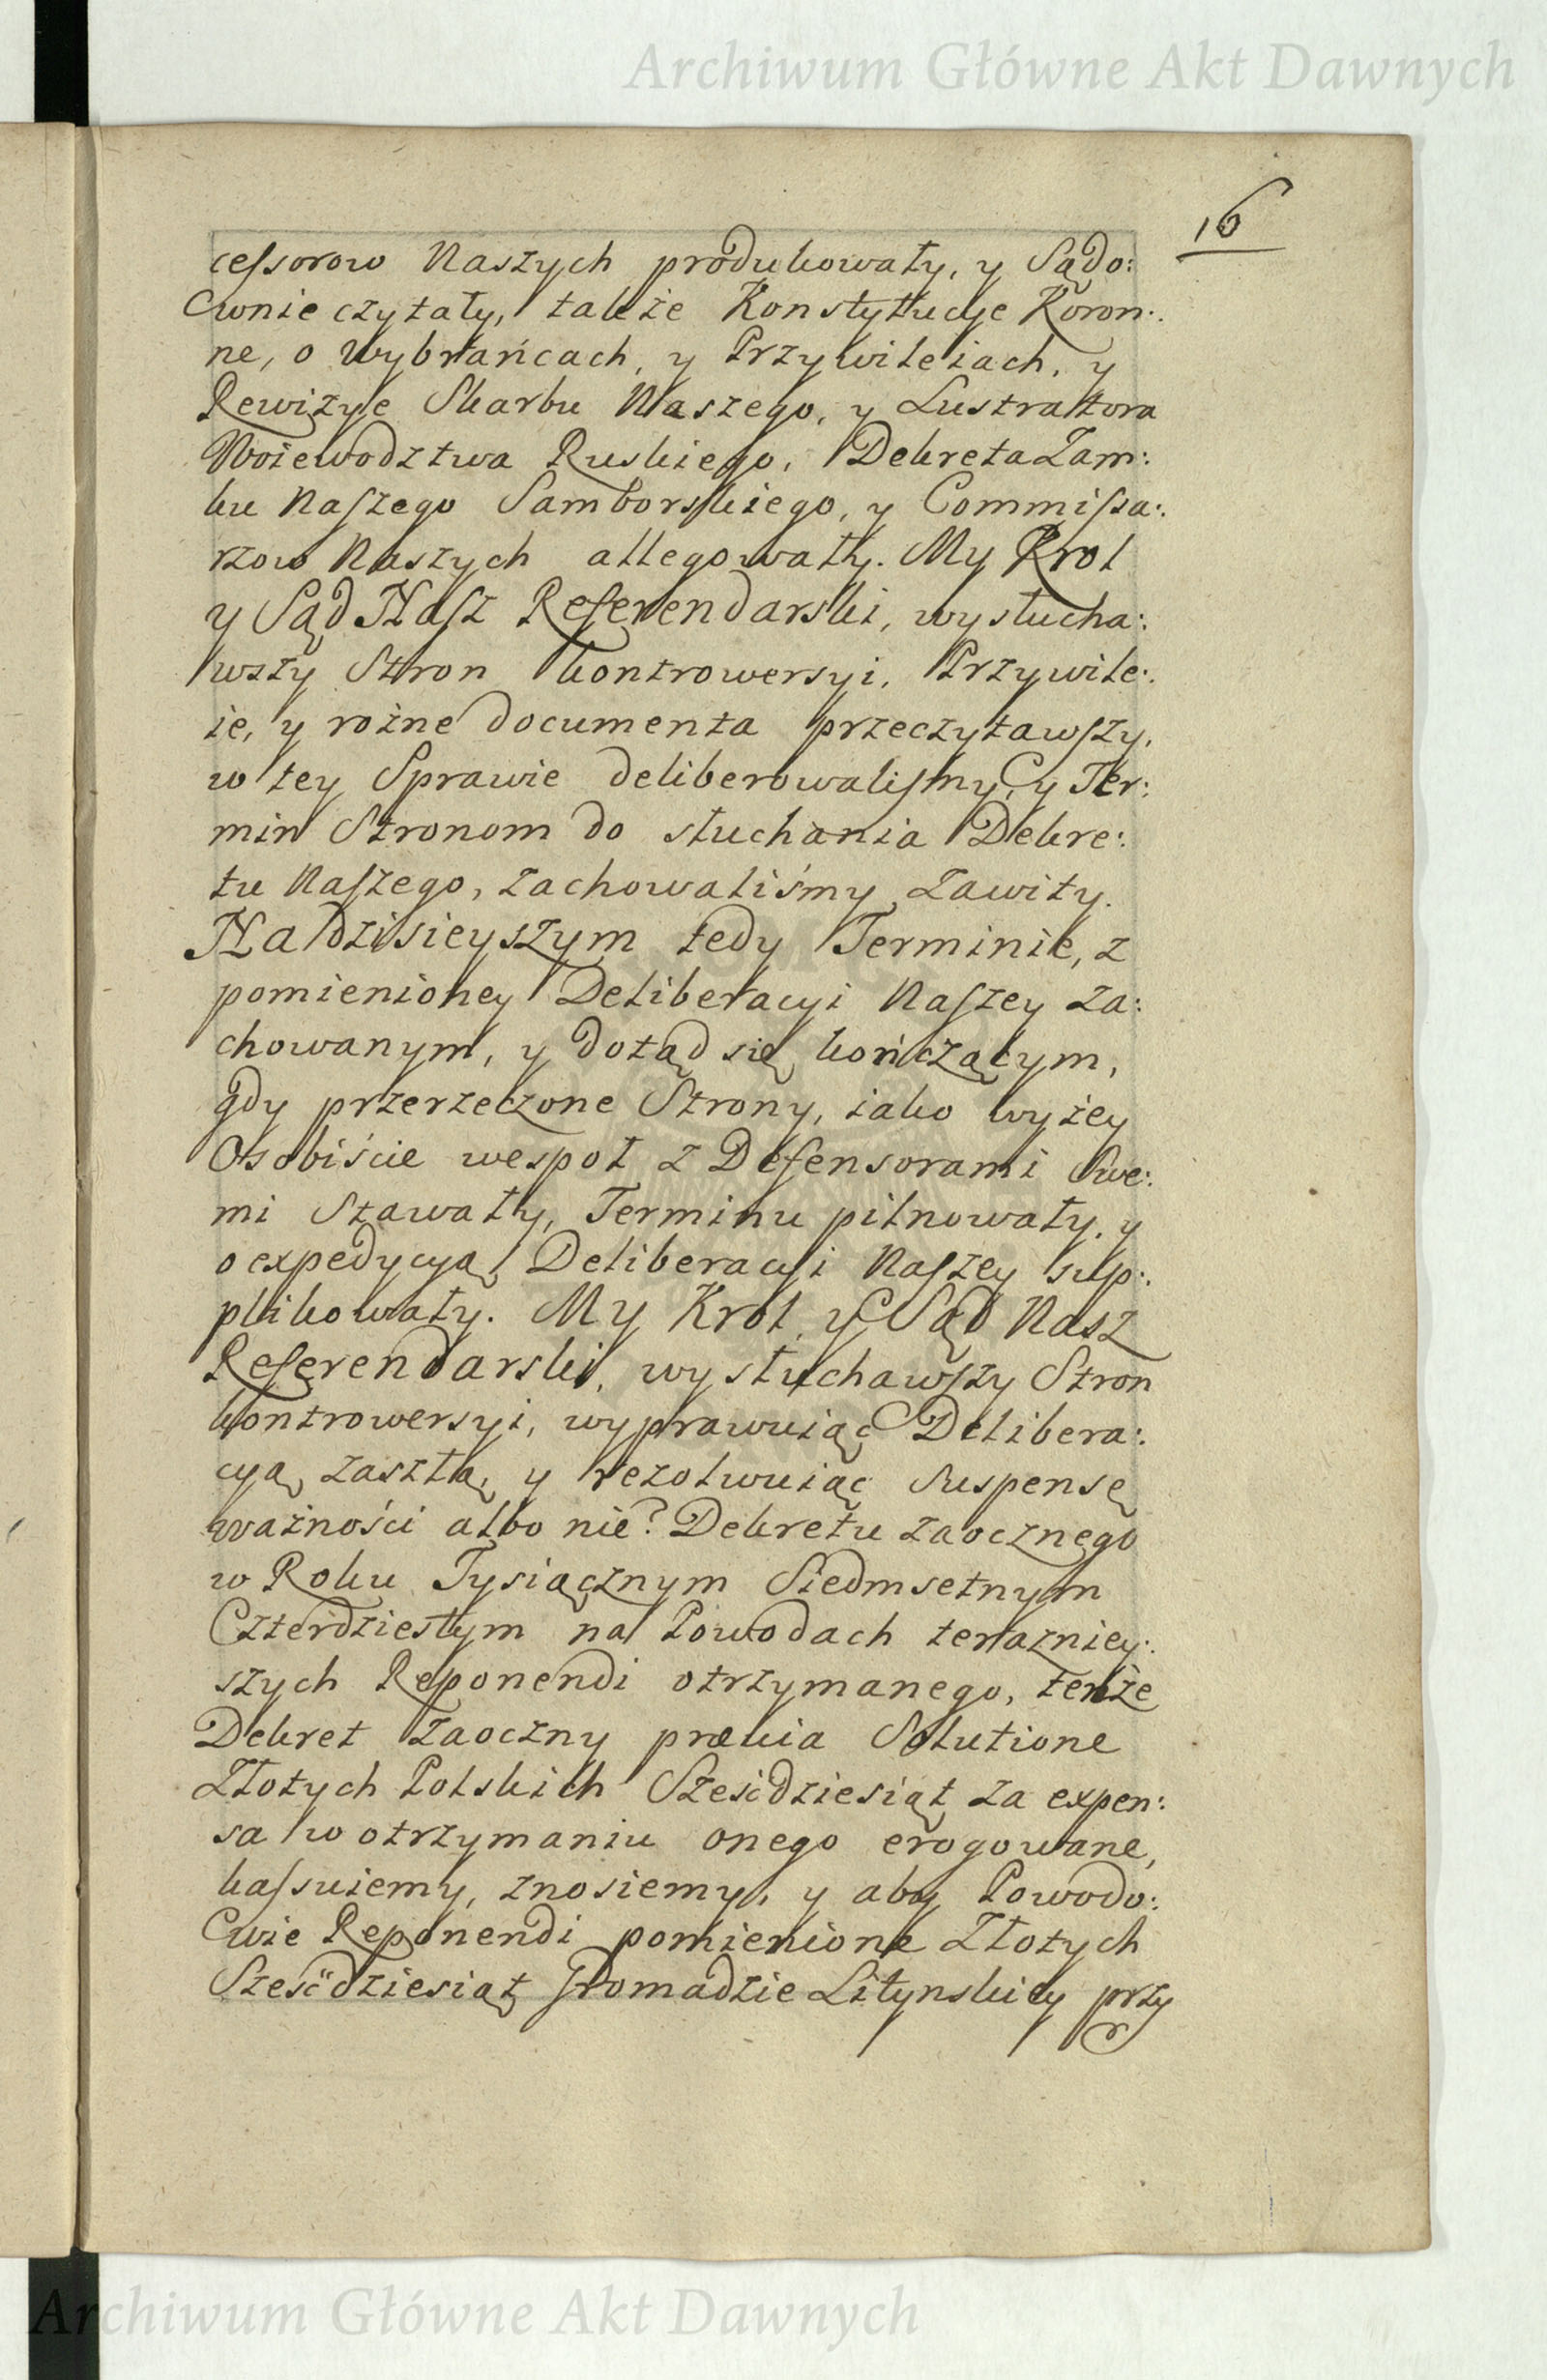 Archiwum Główne Akt Dawnych
16
cessorow Naszych produkowały, y Sądo:
wnie czytały, także Konstytucye Koron:
ne, o Wybrańcach, y Przywileiach, y
Rewizye Skarbu Naszego, y Lustratora
Woiewodztwa Ruskiego, Dekreta Zam:
ku Naszego Samborskiego, y Commissa:
rzow Naszych allegowały. My Krol
y Sąd Nasz Referendarski, wysłucha:
wszy Stron kontrowersyi, Przywile:
ie, y rożne documenta przeczytawszy,
w tey Sprawie deliberowalismy, y Ter:
min Stronom do słuchania Dekre:
tu Naszego, zachowaliśmy zawity.
Na dzisieyszym tedy Terminie, z
pomienioney Deliberacyi Naszey za:
chowanym, y dotąd się kończącym,
gdy przerzeczone Strony, iako wyżey
Osobiście wespoł z Defensorami Swe:
mi Stawały, Terminu pilnowały, y
o expedycyą Deliberacyi Naszey sup:
plikowały. My Krol, y Sąd Nasz
Referendarski, wysłuchawszy Stron
kontrowersyi, wyprawuiąc Delibera:
cyą zaszłą, y rezolwuiąc Suspensę
ważności albo nie? Dekretu zaocznego
w Roku Tysiącznym Siedmsetnym
Czterdziestym na Powodach teraznieу:
szych Reponendi otrzymanego, tenże
Dekret zaoczny prævia Solutione
Złotych Polskich Sześćdziesiąt za expen:
sa w otrzymaniu onego erogowane,
kassuiemy, znosiemy, y aby Powodo:
wie Reponendi pomienione Złotych
Sześćdziesiąt Gromadzie Litynskiey przy
Archiwum Główne Akt Dawnych